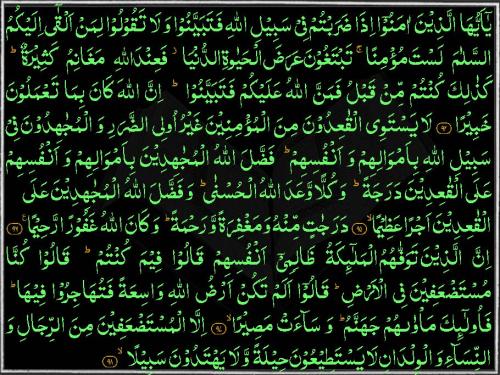 يٰۤاَيُّهَا الَّذِيْنَ اٰمَنُوْۤا اِذَا ضَرَبْتُمْ فِيْ سَبِيْلِ اللّٰهِ فَتَبَيَّنُوْا وَلَا تَقُوْلُوْا لِمَنْ اَلْقٰۤى اِلَيْكُمُ
السَّلٰمَ لَسْتَ مُؤْمِنًا ۚ تَبْتَغُوْنَ عَرَضَ الْحَيٰوةِ الدُّنْيَا ۫ فَعِنْدَ اللّٰهِ مَغَانِمُ كَثِيْرَةٌ ؕ
كَذٰلِكَ كُنْتُمْ مِّنْ قَبْلُ فَمَنَّ اللّٰهُ عَلَيْكُمْ فَتَبَيَّنُوْا ؕ اِنَّ اللّٰهَ كَانَ بِمَا تَعْمَلُوْنَ
خَبِيْرًا ﴿۹۴﴾ لَا يَسْتَوِى الْقٰعِدُوْنَ مِنَ الْمُؤْمِنِيْنَ غَيْرُ اُولِى الضَّرَرِ وَ الْمُجٰهِدُوْنَ فِيْ
سَبِيْلِ اللّٰهِ بِاَمْوَالِهِمْ وَ اَنْفُسِهِمْ ؕ فَضَّلَ اللّٰهُ الْمُجٰهِدِيْنَ بِاَمْوَالِهِمْ وَ اَنْفُسِهِمْ
عَلَى الْقٰعِدِيْنَ دَرَجَةً ؕ وَ كُلًّا وَّعَدَ اللّٰهُ الْحُسْنٰى ؕ وَ فَضَّلَ اللّٰهُ الْمُجٰهِدِيْنَ عَلَى
الْقٰعِدِيْنَ اَجْرًا عَظِيْمًا ۙ﴿۹۵﴾ دَرَجٰتٍ مِّنْهُ وَ مَغْفِرَةً وَّ رَحْمَةً ؕ وَ كَانَ اللّٰهُ غَفُوْرًا رَّحِيْمًا ﴿۹۶﴾
اِنَّ الَّذِيْنَ تَوَفّٰىهُمُ الْمَلٰٓئِكَةُ ظَالِمِيْۤ اَنْفُسِهِمْ قَالُوْا فِيْمَ كُنْتُمْ ؕ قَالُوْا كُنَّا
مُسْتَضْعَفِيْنَ فِى الْاَرْضِ ؕ قَالُوْۤا اَلَمْ تَكُنْ اَرْضُ اللّٰهِ وَاسِعَةً فَتُهَاجِرُوْا فِيْهَا ؕ
فَاُولٰٓئِكَ مَاْوٰىهُمْ جَهَنَّمُ ؕ وَ سَآءَتْ مَصِيْرًا ۙ﴿۹۷﴾ اِلَّا الْمُسْتَضْعَفِيْنَ مِنَ الرِّجَالِ وَ
النِّسَآءِ وَ الْوِلْدَانِ لَا يَسْتَطِيْعُوْنَ حِيْلَةً وَّ لَا يَهْتَدُوْنَ سَبِيْلًا ۙ﴿۹۸﴾